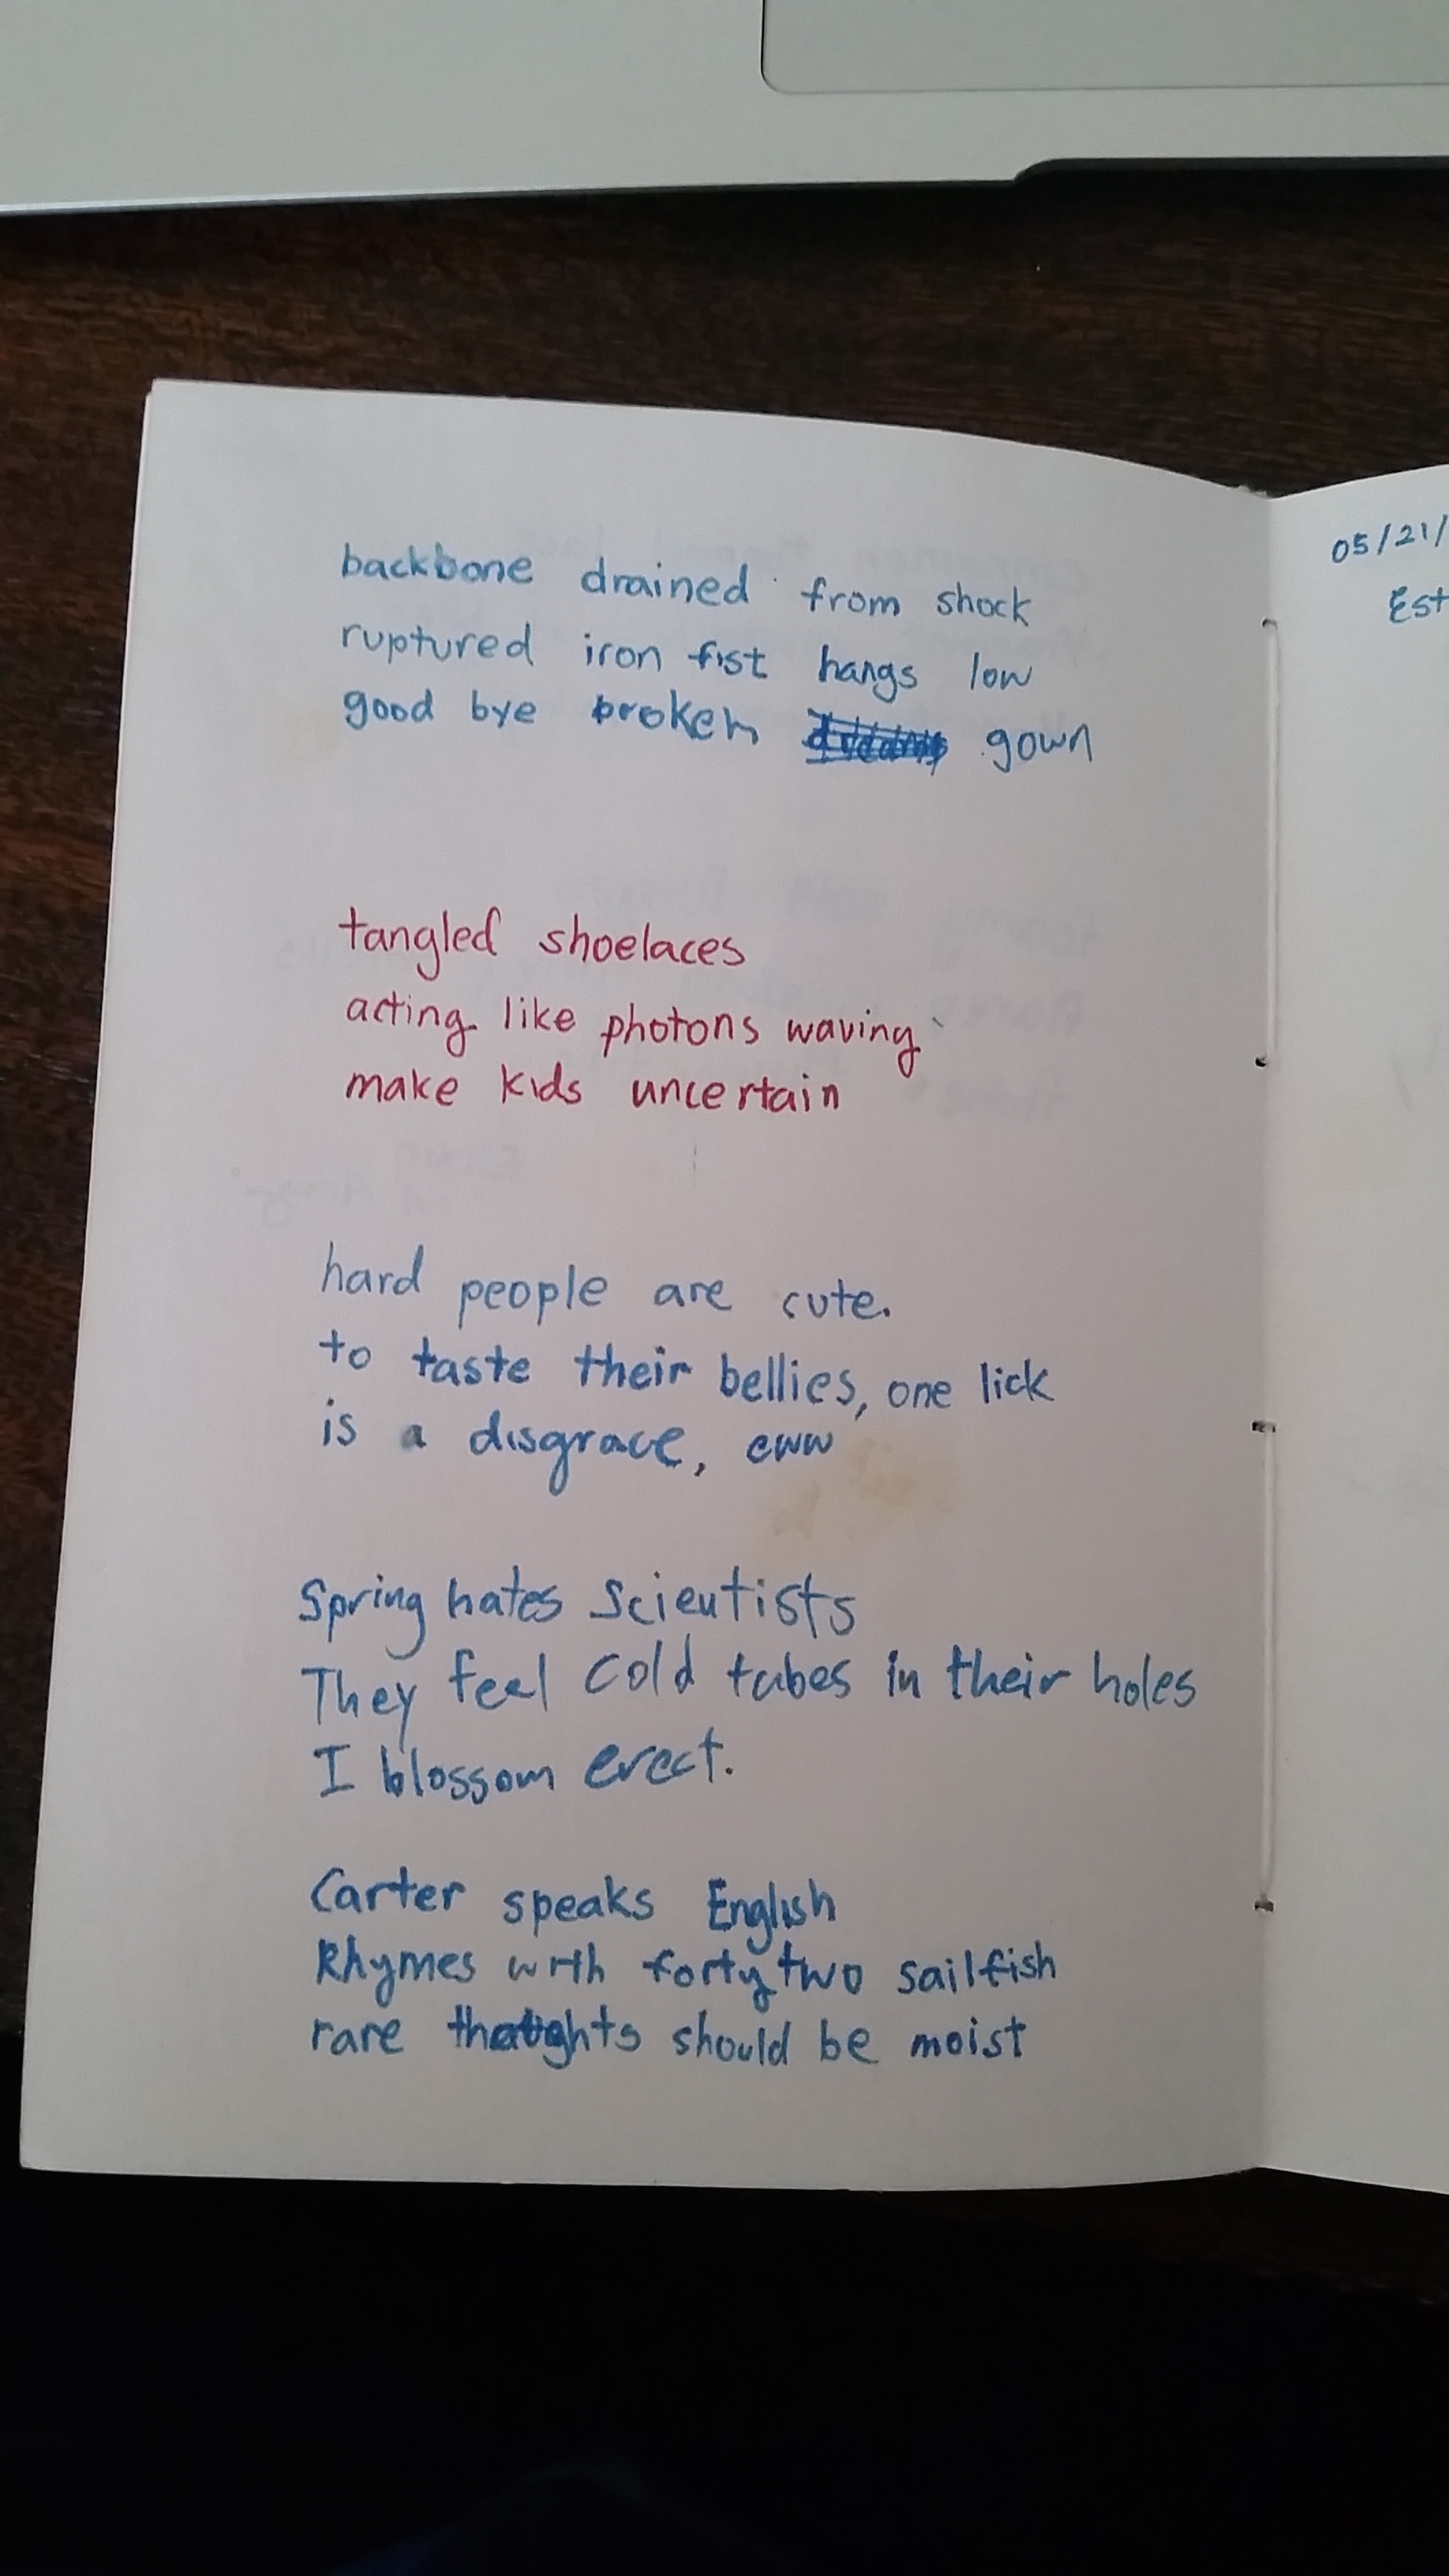 backbone drained from shock
ruptured iron fist hangs low
good bye broken gown
tangled shoelaces
acting like photons waving
make kids uncertain
hard people are cute.
to taste their bellies, one lick
is a disgrace, eww
Spring hates Scientists
They feel cold tubes in their holes
I blossom erect.
Carter speaks English
Rhymes with forty two sailfish
rare thoughts should be moist
05/21/
Est